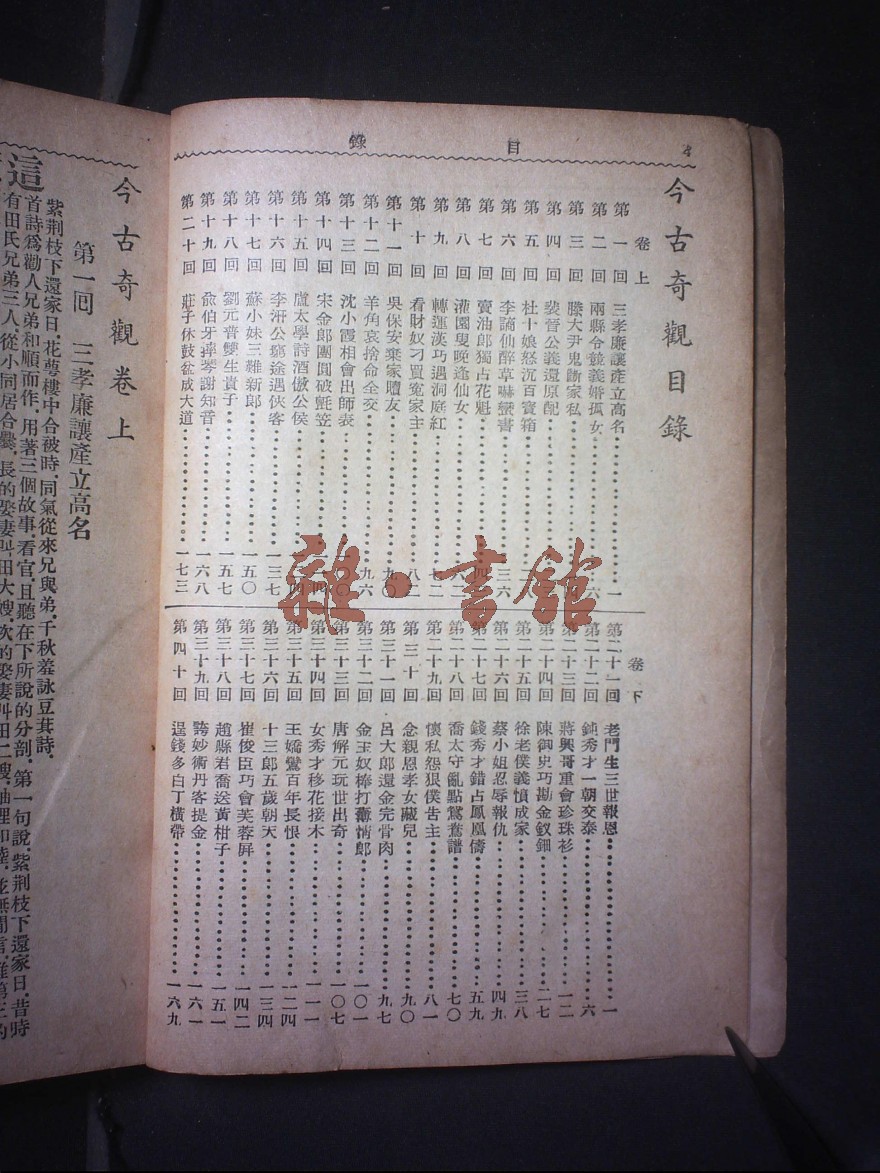 目錄
今古奇觀目錄
卷上
第一回 三孝廉讓產立高名 一
第二回 兩縣令競義婚孤女 六
第三回 滕大尹鬼斷家私
第四回 裴晉公義還原配
第五回 杜十娘怒沉百寶箱
第六回 李謫仙醉草嚇蠻書 三六
第七回 賣油郎獨占花魁 四
第八回 灌園叟晚逢仙女 六二
第九回 轉運漢巧遇洞庭紅 七二
第十回 看財奴刁買冤家主 八二
第十一回 吳保安棄家贖友 九〇
第十二回 羊角哀捨命全交 九六
第十三回 沈小霞相會出師表
第十四回 宋金郎團圓破氈笠
第十五回 盧太學詩酒傲公侯
第十六回 李汧公窮途遇俠客 一三七
第十七回 蘇小妹三難新郎 一五〇
第十八回 劉元普雙生貴子 一五七
第十九回 兪伯牙摔琴謝知音 一六八
第二十回 莊子休鼓盆成大道 一七三
卷下
第二十一回 老門生三世報恩 一
第二十二回 鈍秀才一朝交泰 六
第二十三回 蔣興哥重會珍珠衫 一二
第二十四回 陳御史巧勘金釵鈿 二七
第二十五回 徐老僕義憤成家 三八
第二十六回 蔡小姐忍辱報仇 四九
第二十七回 錢秀才錯占鳳凰儔 五九
第二十八回 喬太守亂點鴛鴦譜 七〇
第二十九回 懷私怨狠僕告主 八一
第三十回 念親恩孝女藏兒 九〇
第三十一回 呂大郎還金完骨肉 九七
第三十二回 金玉奴棒打薄情郎 一〇一
第三十三回 唐解元玩世出奇 一〇七
第三十四回 女秀才移花接木 一一一
第三十五回 王嬌鸞百年長恨 一二四
第三十六回 十三郎五歲朝天 一三四
第三十七回 崔俊臣巧會芙蓉屏 一四二
第三十八回 趙縣君喬送黃柑子 一五一
第三十九回 誇妙術丹客提金 一六一
第四十回 逞錢多白丁橫帶 一六九
雜·書館
今古奇觀卷上
第一回 三孝廉讓產立高名
紫荊枝下還家日，花萼樓中合被時，同氣從來兄與弟，千秋羞詠豆萁詩，
這首詩爲勸人兄弟和順而作，用著三個故事，看官，且聽在下所說的分剖，第一句說，紫荊枝下還家日，昔時
有田氏兄弟三人，從小同居合爨，長的娶妻叫田大嫂，次的娶妻叫田二嫂，妯娌和睦，並無閒言，